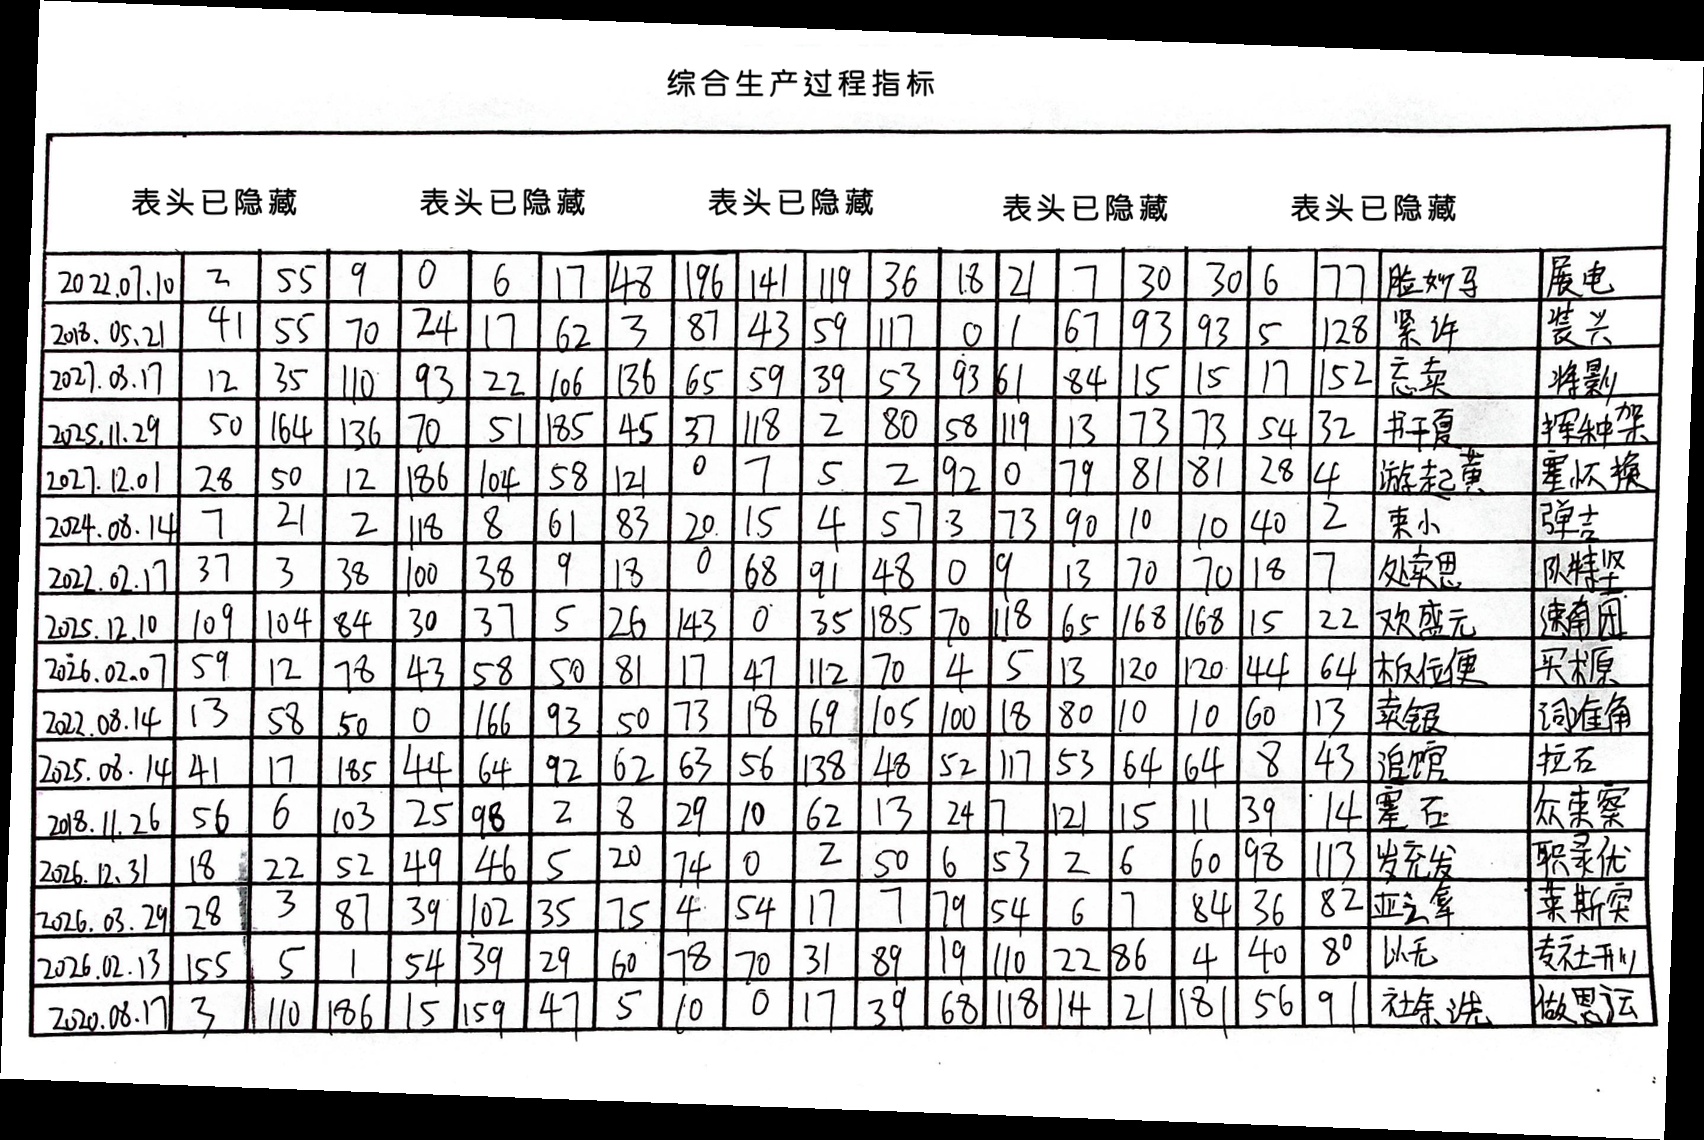 综合生产过程指标
表头已隐藏 表头已隐藏 表头已隐藏 表头已隐藏 表头已隐藏
2022.07.10 2 55 9 0 6 17 48 196 141 119 36 18 21 7 30 30 6 77 脸妙子 展电
2018.05.21 41 55 70 24 17 62 3 87 43 59 117 0 1 67 93 93 5 128 紧许 装兴
2027.03.17 12 35 110 93 22 106 136 65 59 39 53 93 61 84 15 15 17 152 忘卖 将影
2025.11.29 50 164 136 70 51 185 45 37 118 2 80 58 119 13 73 73 54 32 书干夏 挥种架
2027.12.01 28 50 12 186 104 58 121 0 7 5 2 92 0 79 81 81 28 4 游起黄 塞怀换
2024.08.14 7 21 2 118 8 61 83 20 15 4 57 3 73 90 10 10 40 2 束小 弹吉
2022.02.17 37 3 38 100 38 9 18 0 68 91 48 0 9 13 70 70 18 7 处索思 队特坚
2025.12.10 109 104 84 30 37 5 26 143 0 35 185 70 118 65 168 168 15 22 欢盛元 速角团
2026.02.07 59 12 78 43 58 50 81 17 47 112 70 4 5 13 120 120 44 64 板位便 买木原
2022.08.14 13 58 50 0 166 93 50 73 18 69 105 100 18 80 10 10 60 13 卖银 词准角
2025.08.14 41 17 185 44 64 92 62 63 56 138 48 52 117 53 64 64 8 43 追馆 拉石
2018.11.26 56 6 103 25 98 2 8 29 10 62 13 24 7 121 15 11 39 14 塞石 众束察
2026.12.31 18 22 52 49 46 5 20 74 0 2 50 6 53 2 6 60 98 113 岁充发 职录优
2026.03.29 28 3 87 39 102 35 75 4 54 17 7 79 54 6 7 84 36 82 亚云拿 莱斯突
2026.02.13 155 5 1 54 39 29 60 78 70 31 89 19 110 22 86 4 40 80 以无 专社刑
2020.08.17 3 110 186 15 159 47 5 10 0 17 39 68 118 14 21 181 56 91 社余洗 做恩运